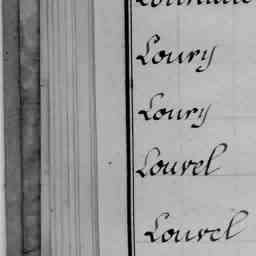 Loury
Loury
Louvel
Louvel